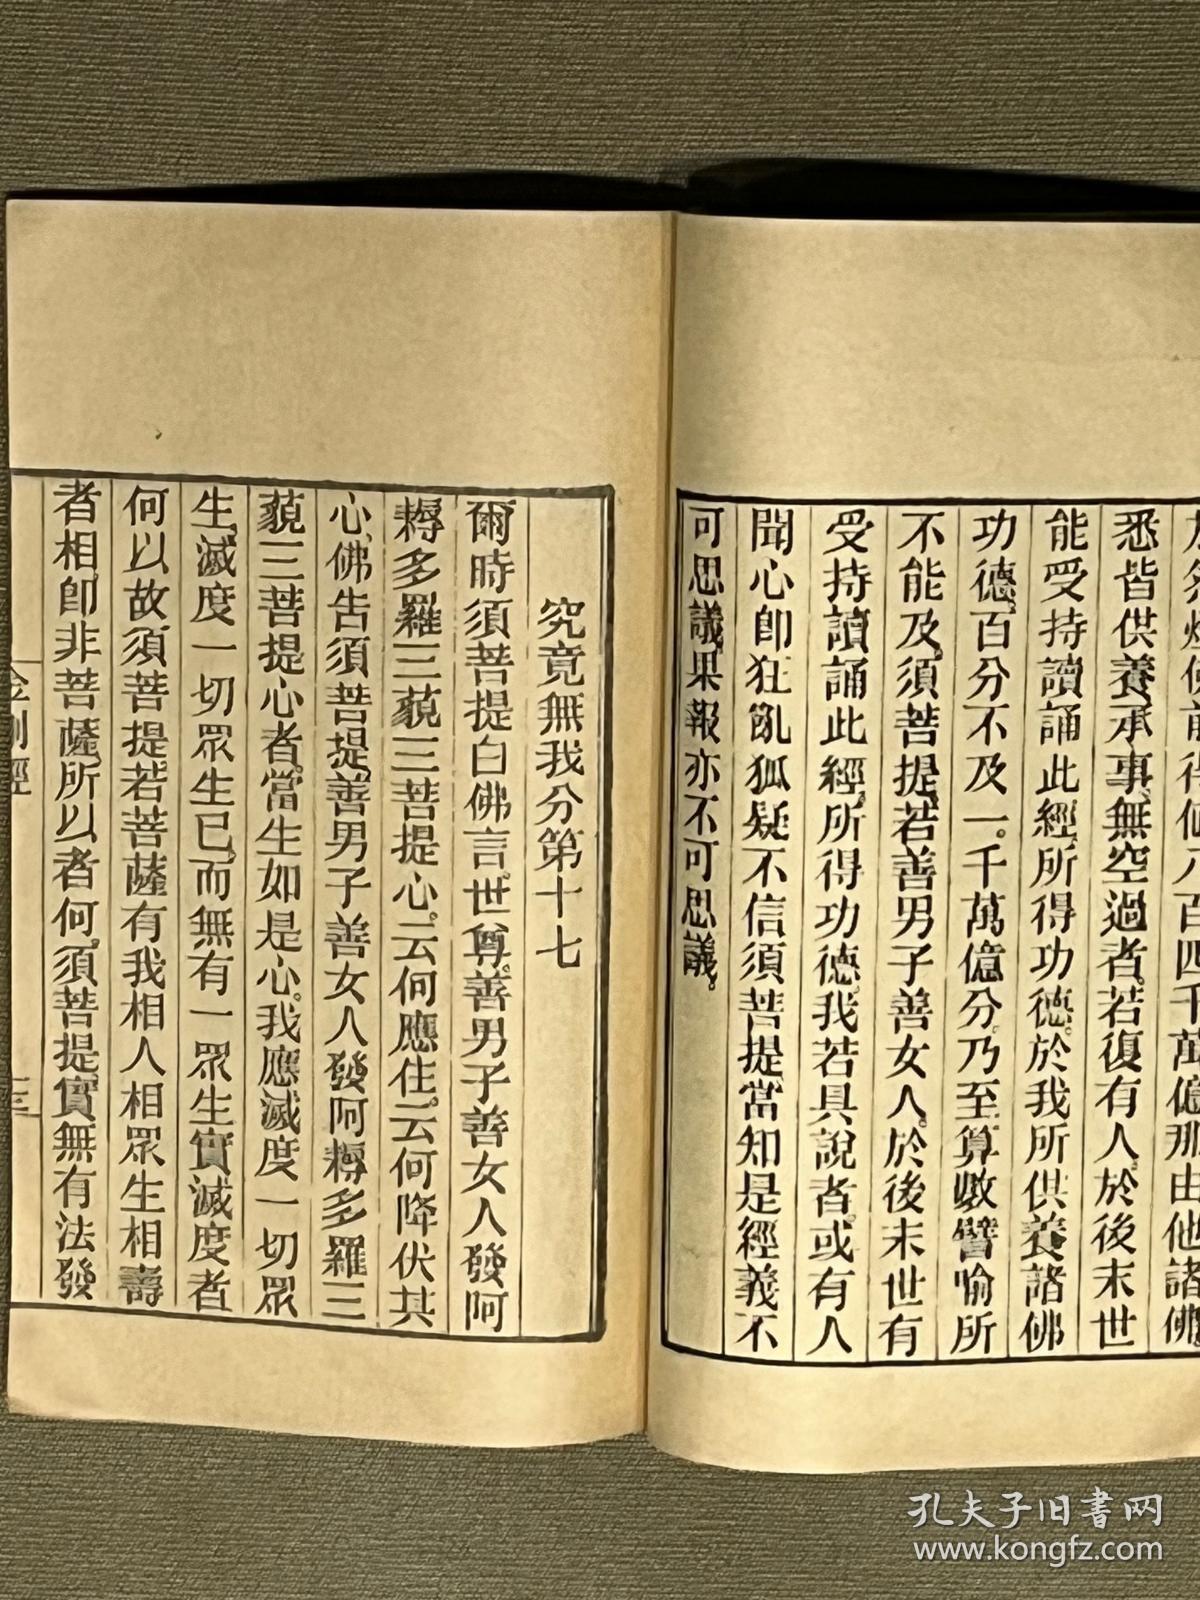 於然燈佛前得值八百四千萬億那由他諸佛
悉皆供養承事、無空過者。若復有人、於後末世
能受持讀誦此經、所得功德。於我所供養諸佛
功德。百分不及一。千萬億分。乃至算數譬喻所
不能及。須菩提、若善男子善女人。於後末世有
受持讀誦此經、所得功德。我若具說者、或有人
聞心卽狂亂狐疑不信須菩提當知是經義不
可思議、果報亦不可思議。
究竟無我分第十七
爾時須菩提白佛言。世尊。善男子善女人發阿
耨多羅三藐三菩提心。云何應住。云何降伏其
心、佛告須菩提、善男子善女人發阿耨多羅三
藐三菩提心者。當生如是心。我應滅度一切眾
生。滅度一切眾生已。而無有一眾生實滅度者
何以故須菩提。若菩薩有我相人相眾生相壽
者相。卽非菩薩。所以者何。須菩提。實無有法發
金剛經
三
孔夫子旧书网
www.kongfz.com